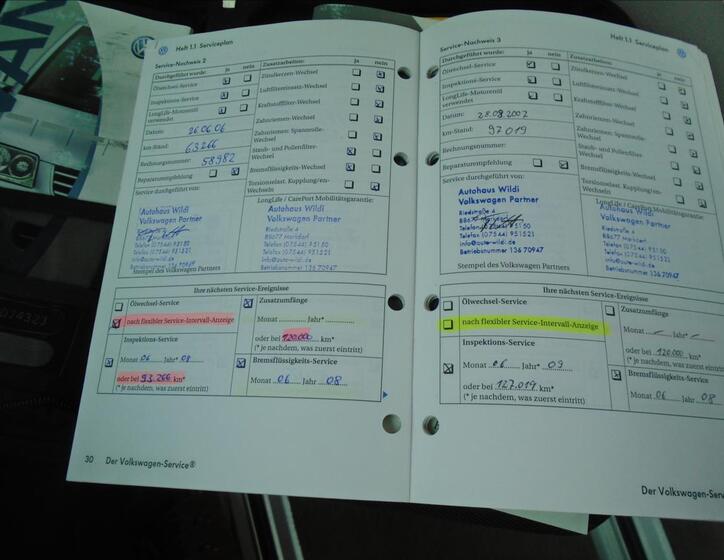 Heft 1.1 Serviceplan
Service-Nachweis 2
Durchgeführt wurde: ja nein
Ölwechsel-Service
Inspektions-Service
LongLife-Motorenöl
verwendet
Datum: 26.06.06
km-Stand: 63.266
Rechnungsnummer: 58982
Reparaturempfehlung
Service durchgeführt von:
Autohaus Wildi
Volkswagen Partner
Stempel des Volkswagen Partners
Zusatzarbeiten: ja nein
Zündkerzen-Wechsel
Luftfiltereinsatz-Wechsel
Kraftstofffilter-Wechsel
Zahnriemen-Wechsel
Zahnriemen: Spannrolle-
Wechsel
Staub- und Pollenfilter-
Wechsel
Bremsflüssigkeits-Wechsel
LongLife / CarePort Mobilitätsgarantie:
Autohaus Wildi
Volkswagen Partner
Riedstraße 4
88677 Markdorf
Telefon (07544) 95150
Telefax (07544) 951521
info@auto-wildi.de
Betriebsnummer 136 70947
Ihre nächsten Service-Ereignisse
Ölwechsel-Service
nach flexibler Service-Intervall-Anzeige
Inspektions-Service
Monat 06 Jahr* 08
oder bei 93.266 km*
(* je nachdem, was zuerst eintritt)
Zusatzumfänge
Monat Jahr*
oder bei 120.000 km*
(* je nachdem, was zuerst eintritt)
Bremsflüssigkeits-Service
Monat 06 Jahr 08
30 Der Volkswagen-Service®
Heft 1.1 Serviceplan
Service-Nachweis 3
Durchgeführt wurde: ja nein
Ölwechsel-Service
Inspektions-Service
LongLife-Motorenöl
verwendet
Datum:
km-Stand: 97019
Rechnungsnummer:
Reparaturempfehlung
Service durchgeführt von:
Autohaus Wildi
Volkswagen Partner
Riedstraße 4
Betriebsnummer 136 70947
Stempel des Volkswagen Partners
Zusatzarbeiten: ja nein
Zündkerzen-Wechsel
Luftfiltereinsatz-Wechsel
Kraftstofffilter-Wechsel
Zahnriemen-Wechsel
Staub- und Pollenfilter-
Wechsel
Bremsflüssigkeits-Wechsel
LongLife / CarePort Mobilitätsgarantie:
Autohaus Wildi
Volkswagen Partner
Riedstraße 4
88677 Markdorf
Telefon (07544) 95150
Telefax (07544) 951521
info@auto-wildi.de
Betriebsnummer 136 70947
Ihre nächsten Service-Ereignisse
Ölwechsel-Service
nach flexibler Service-Intervall-Anzeige
Inspektions-Service
Monat 06 Jahr* 09
oder bei 127.019 km*
(* je nachdem, was zuerst eintritt)
Zusatzumfänge
Monat Jahr*
oder bei 120.000 km*
(* je nachdem, was zuerst eintritt)
Bremsflüssigkeits-Service
Monat 06 Jahr 08
Der Volkswagen-Serv